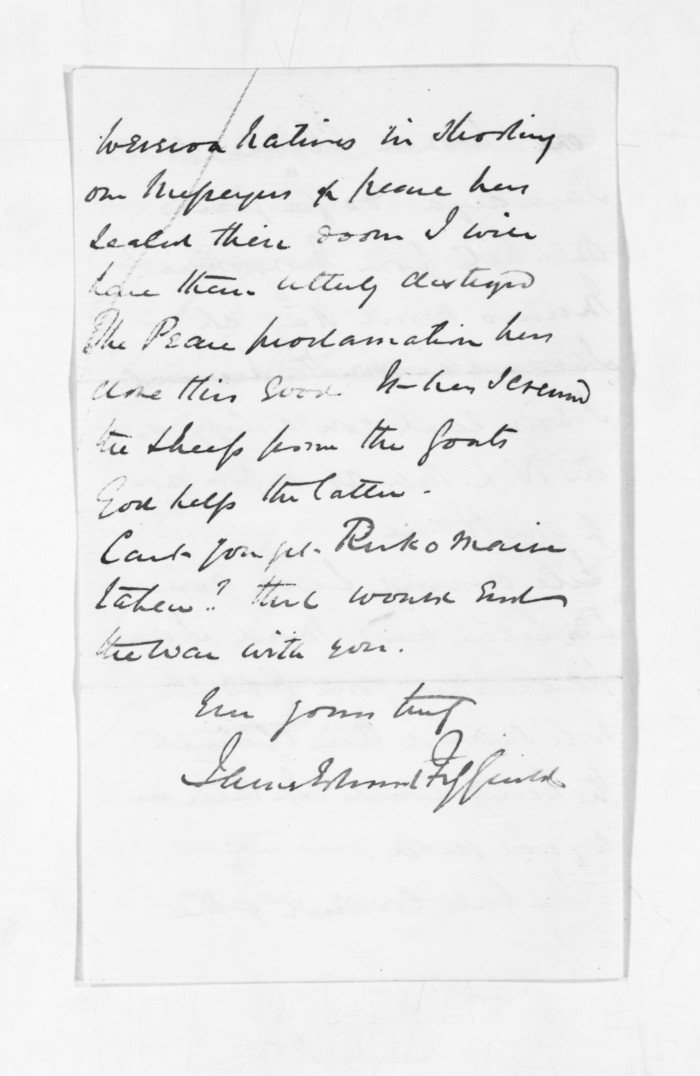 Weraroa Natives in shooting
our Messengers of peace has
sealed their doom I will
have them utterly destroyed
The Peace proclamation has
done this Good. It has screened
the sheep from the Goats
God help the latter.
Cant you get Maire
taken? that would End
the War with you.
Ever yours truly
James Edward FitzGerald